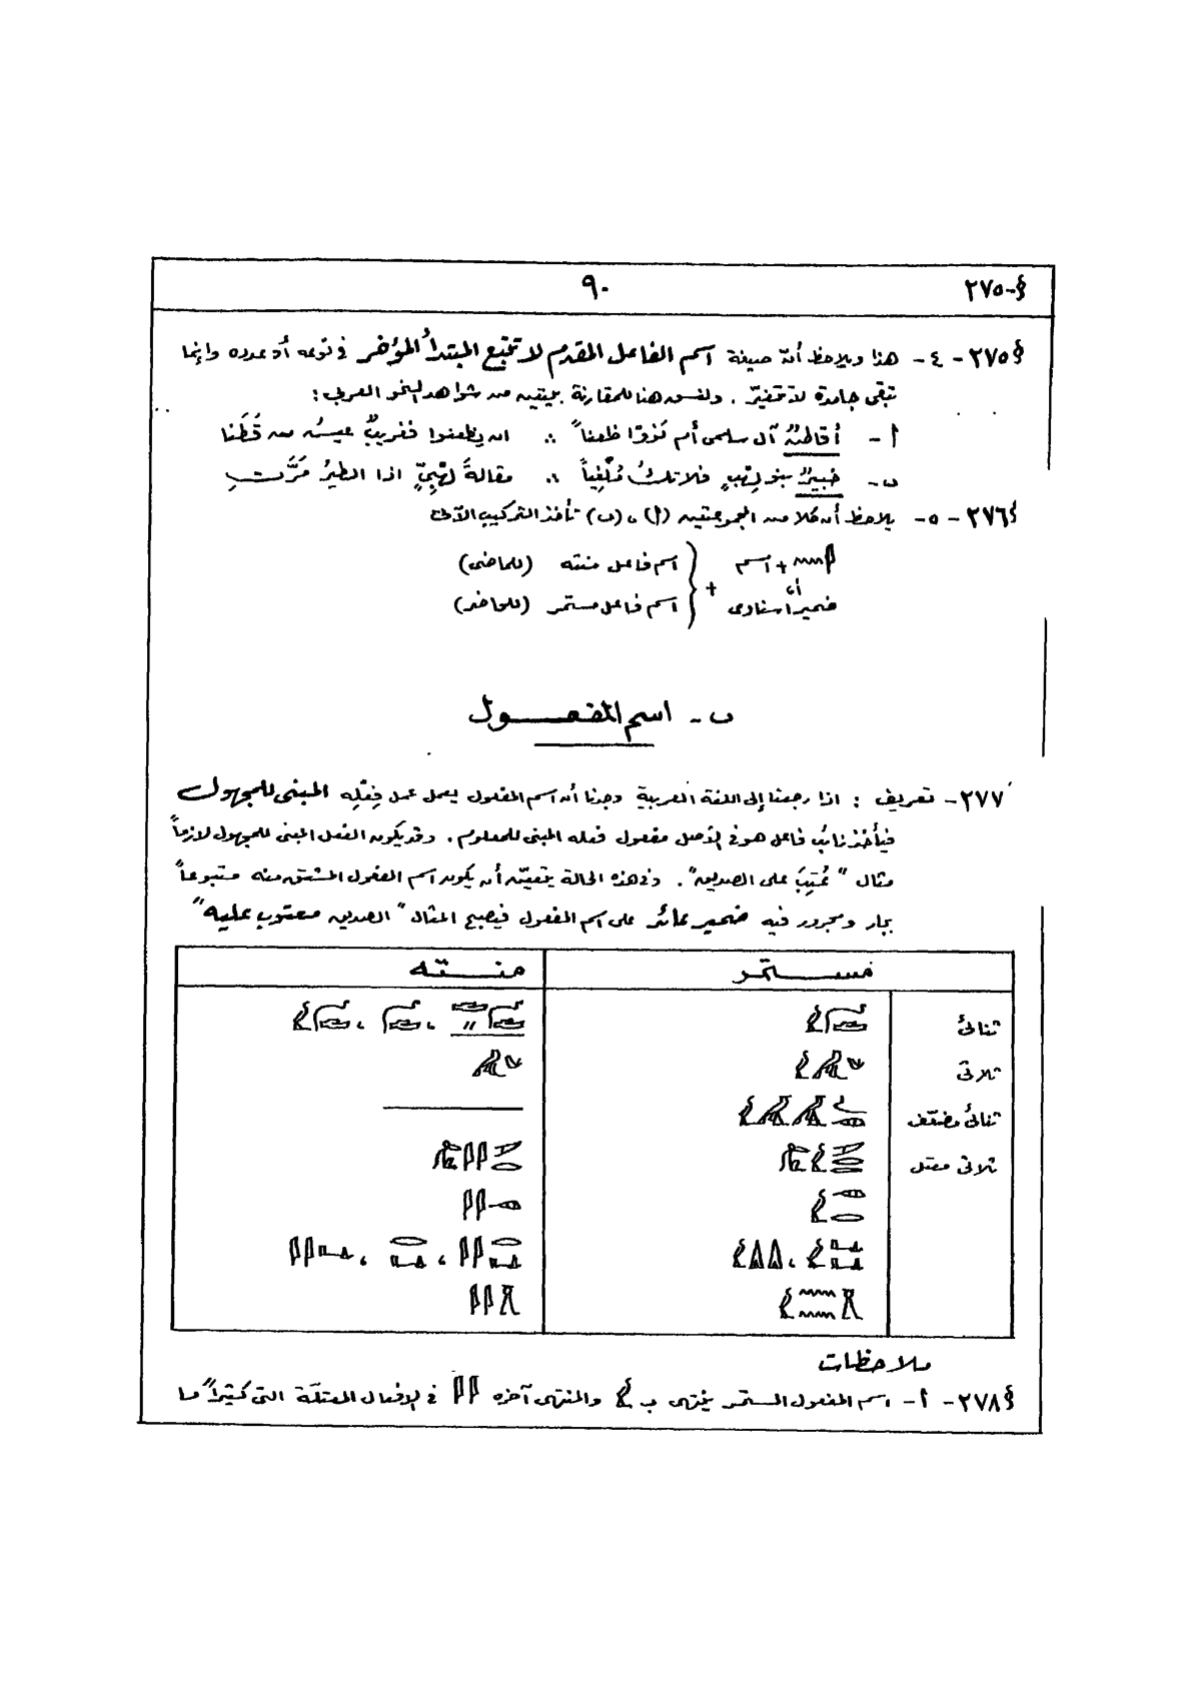 §-٢٧٥
٩٠
§٢٧٥-٤- هذا ويلاحظ أنّ صيغة اسم الفاعل المقدم لا تتبع المبتدأ المؤخر في نوعه أو عدده وإنما
تبقى جامدة لا تتغيّر . ولنسق هنا للمقارنة بيتين من شواهد النحو العربى :
أ- أقاطنٌ آل سلمى أم نَوَوْا ظعناً ∴ ان يظعنوا فغريبٌ عيشُ من قَطَنا
ب- خبيرٌ بنو لِهْبٍ فلا تكُ مُلْغِياً ∴ مقالةَ لِهْبِيٍّ اذا الطيرُ مَرَّتــتِ
§٢٧٦-٥- يلاحظ أن كلا من المجموعتين (أ) ، (ب) تأخذ التركيب الآتى
+ اسم
أى
ضمير اسنادى
+
اسم فاعل منته (للماضى)
اسم فاعل مستمر (للحاضر)
ب- اسم المفعــــول
٢٧٧- تعريف : اذا رجعنا إلى اللغة العربية وجدنا أن اسم المفعول يعمل عمل فِعْلِه المبنى للمجهول
فيأخذ نائب فاعل هو فى الأصل مفعول فعله المبنى للمعلوم . وقد يكون الفعل المبنى للمجهول لازماً
مثال " عُتِبَ على الصديق" . وفى هذه الحالة يتعيّن أن يكون اسم المفعول المشتق منه متبوعاً
بجار ومجرور فيه ضمير عائد على اسم المفعول فيصبح المثال " الصديق معتوب عليه "
مستـــمر
منــتــه
ثنائى
ثلاثى
ثنائى مضعّف
ثلاثى معتل
ملاحظات
§٢٧٨- أ- اسم المفعول المستمر ينتهى ب والمنتهى آخره فى الافعال المعتلّة التى كثيراً ما